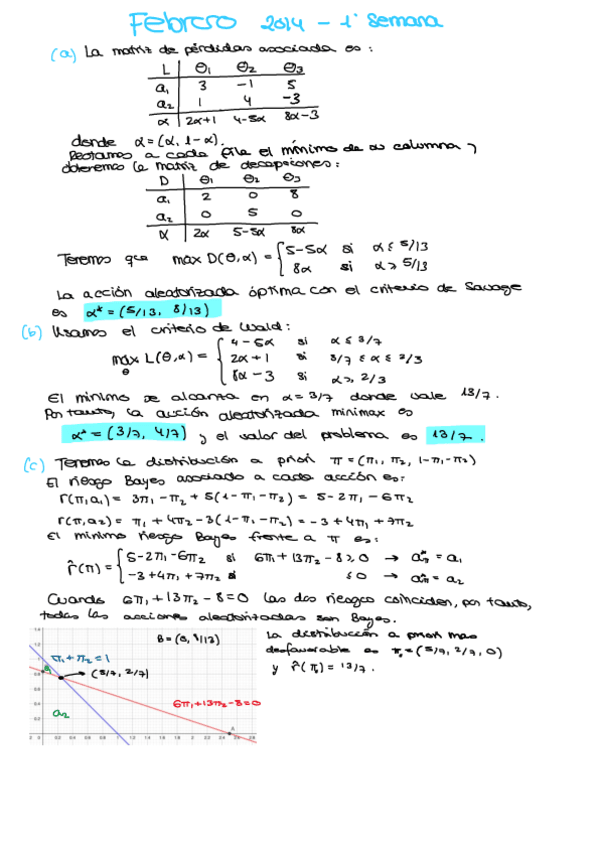 Febrero 2014 - 1ª Semana
(a) La matriz de pérdidas asociada es:
L θ1 θ2 θ3
a1 3 -1 5
a2 1 4 -3
α 2α+1 4-5α 8α-3
donde α = (α, 1-α).
Restamos a cada fila el mínimo de su columna y
obtenemos la matriz de decepciones:
D θ1 θ2 θ3
a1 2 0 8
a2 0 5 0
α 2α 5-5α 8α
Tenemos que max D(θ,α) = { 5-5α si α ≤ 5/13
8α si α ≥ 5/13
La acción aleatorizada óptima con el criterio de Savage
es α* = (5/13, 8/13)
(b) Usamos el criterio de Wald:
max L(θ,α) = { 4-5α si α ≤ 3/7
θ
2α+1 si 3/7 ≤ α ≤ 2/3
8α-3 si α ≥ 2/3
El mínimo se alcanza en α = 3/7 donde vale 13/7.
Por tanto, la acción aleatorizada minimax es
α* = (3/7, 4/7) y el valor del problema es 13/7.
(c) Tenemos la distribución a priori π = (π1, π2, 1-π1-π2)
El riesgo Bayes asociado a cada acción es:
r(π,a1) = 3π1 - π2 + 5(1-π1-π2) = 5-2π1-6π2
r(π,a2) = π1 + 4π2 - 3(1-π1-π2) = -3+4π1+7π2
El mínimo riesgo Bayes frente a π es:
r̂(π) = { 5-2π1-6π2 si 6π1+13π2-8 ≥ 0 → a*π = a1
-3+4π1+7π2 si ≤ 0 → a*π = a2
Cuando 6π1+13π2-8=0 los dos riesgos coinciden, por tanto,
todas las acciones aleatorizadas son Bayes.
B = (0, 8/13)
π1+π2=1
(5/7, 2/7)
6π1+13π2-8=0
a2
La distribución a priori mas
desfavorable es π0 = (5/7, 2/7, 0)
y r̂(π0) = 13/7.